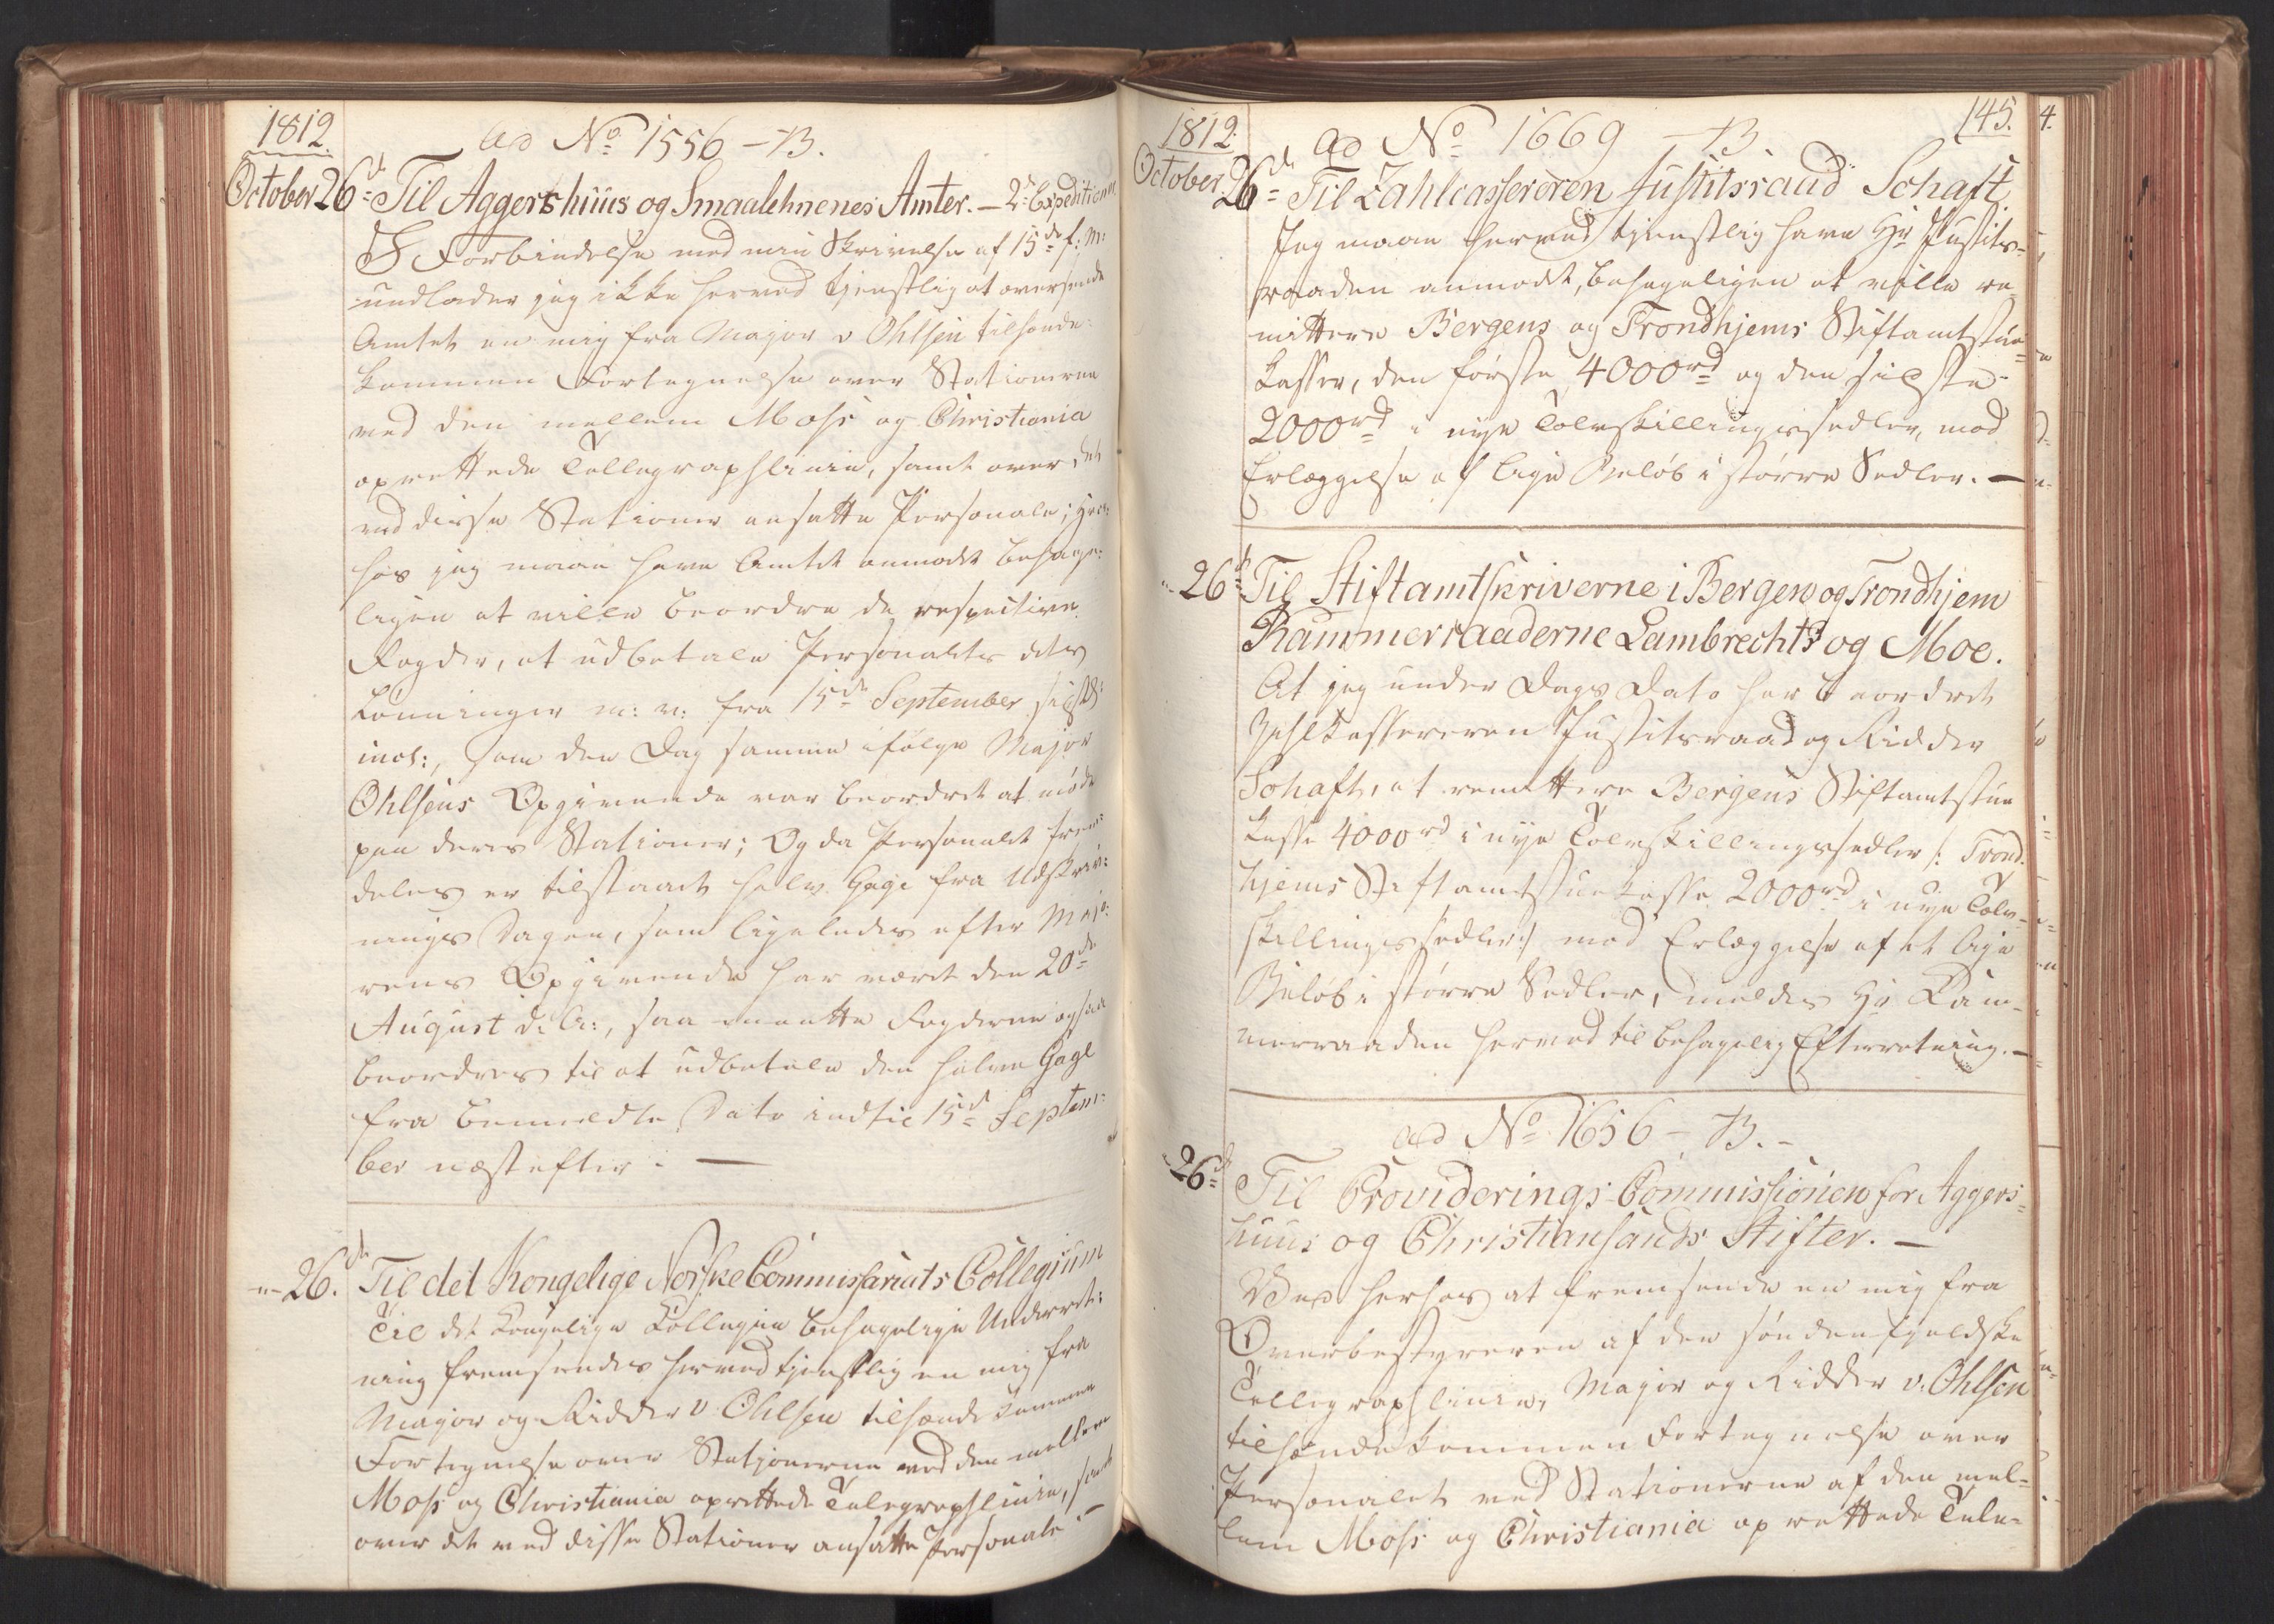 1812.
ad No 1556 - B.
October 26de Til Aggershuus og Smaalehnenes Amter. - 2de Expeditioner
I Forbindelse med min Skrivelse af 15de f: M:
undlader jeg ikke herved tjenstlig at oversende
Amtet en mig fra Major v Ohlsen tilhænde-
kommen Fortegnelse over Stationerne
ved den mellem Moss og Christiania
oprettede Tellegraphlinie, samt over det
ved disse Stationer ansatte Personale; hvor-
hos jeg maae have Amtet anmodet behage-
ligen at ville beordre de respective
Fogder, at udbetale Personalet dets
Lønninger m: v: fra 15de September sidstl:
incl:, som den Dag samme ifølge Major
Ohlsens Opgivende var beordret at møde
paa deres Stationer; Og da Personalet frem-
deles er tilstaaet halv Gage fra Udskriv-
nings Dagen, som ligeledes efter Majo-
rens Opgivende har været den 20de
August d. A:, saa maatte Fogderne ogsaa
beordres til at udbetale den halve Gage
fra bemeldte Dato indtil 15de Septem-
ber næstefter. —
- 26de Til det Kongelige Norske Commissariats Collegium
Til det Kongelige Collegiu behagelige Underret-
ning fremsendes herved tjenstlig en mig fra
Major og Ridder v Ohlsen tilhændekommen
Fortegnelse over Stationerne ved den mellem
Moss og Christiania oprettede Telegraphlinie, samt
over det ved disse Stationer ansatte Personale. —
1812.
145.
4.
ad No 1669 - B.
October 26de Til Zahlcassereren Justitsraad Schaft.
Jeg maae herved tjenstlig have Hr Justits-
raaden anmodet, behageligen at ville re-
mittere Bergens og Trondhjems Stiftamtstue-
kasser, den første 4000rd og den sidste
2000rd i nye Tolvskillingssedler, mod
Erlæggelse af lige Beløb i større Sedler. —
- 26de Til Stiftamtskriverne i Bergen og Trondhjem
Kammerraaderne Lambrechts og Moe.
At jeg under Dags Dato har beordret
Zahlkassereren Justitsraad og Ridder
Schaft, at remittere Bergens Stiftamtstue
kasse 4000rd i nye Tolvskillingssedler /: Trond-
hjems Stiftamtstuekasse 2000rd i nye Tolv-
skillingssedler :/ mod Erlæggelse af et lige
Beløb i større Sedler, meldes Hr Kam-
merraaden herved til behagelig Efterretning. —
ad No 1656 - B. -
- 26de Til Providerings Commissionen for Aggers-
huus og Christiansands Stifter. —
Ved herhos at fremsende en mig fra
Overbestyreren af den søndenfjeldske
Tellegraphlinie, Major og Ridder v. Ohlsen
tilhændekommen Fortegnelse over
Personalet ved Stationerne af den mel-
lem Moss og Christiania oprettede Tele-